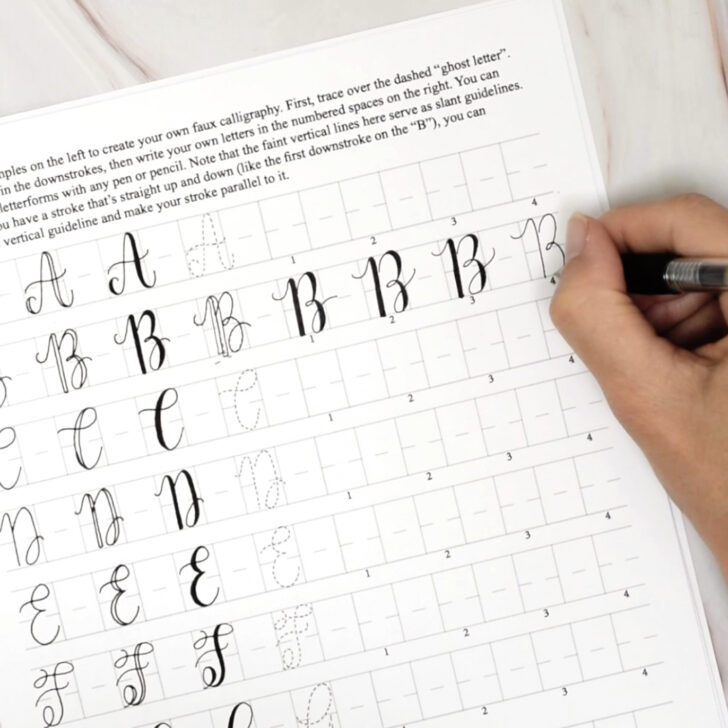 mples on the left to create your own faux calligraphy. First, trace over the dashed “ghost letter”.
in the downstrokes, then write your own letters in the numbered spaces on the right. You can
letterforms with any pen or pencil. Note that the faint vertical lines here serve as slant guidelines.
ou have a stroke that’s straight up and down (like the first downstroke on the “B”), you can
vertical guideline and make your stroke parallel to it.
A A A
1 2 3 4
B B B B B B B
1 2 3 4
C C C C
1 2 3 4
D D D D
1 2 3 4
E E E E
1 2 3 4
F F F F
1 2 3 4
2 3 4